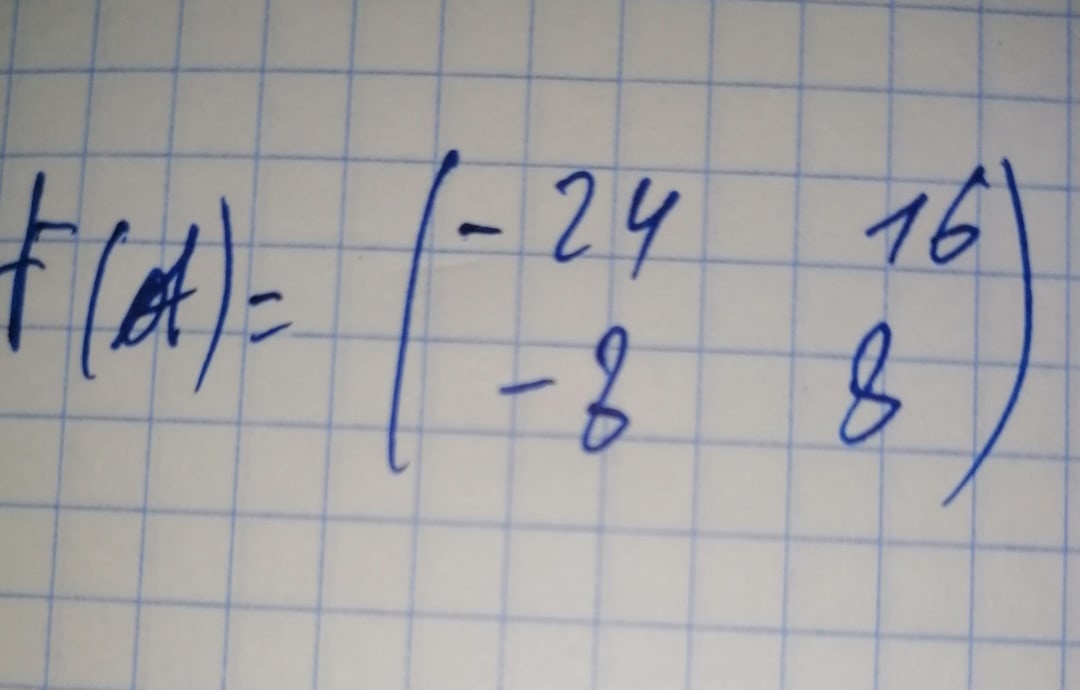 f(A)= ( -24 16
-8 8 )